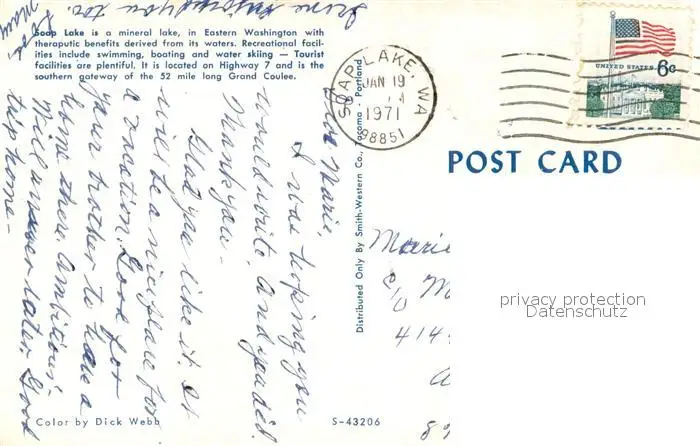 Soap Lake is a mineral lake, in Eastern Washington with
theraputic benefits derived from its waters. Recreational facil-
ities include swimming, boating and water skiing — Tourist
facilities are plentiful. It is located on Highway 7 and is the
southern gateway of the 52 mile long Grand Coulee.
Dear Marie,
I was hoping you
would write, and you did.
Thank you -
Glad you like it. It
will be a nice place for
a vacation. Good for
your brother to have a
home there. Ambitious!
Will answer later. Good
trip home -
enjoyed you too.
Love
Color by Dick Webb
S-43206
Distributed Only By Smith-Western Co., Tacoma Portland
SOAP LAKE, WA
JAN 19
1971
98851
UNITED STATES 6c
POST CARD
Marie
c/o M
414
privacy protection
Datenschutz